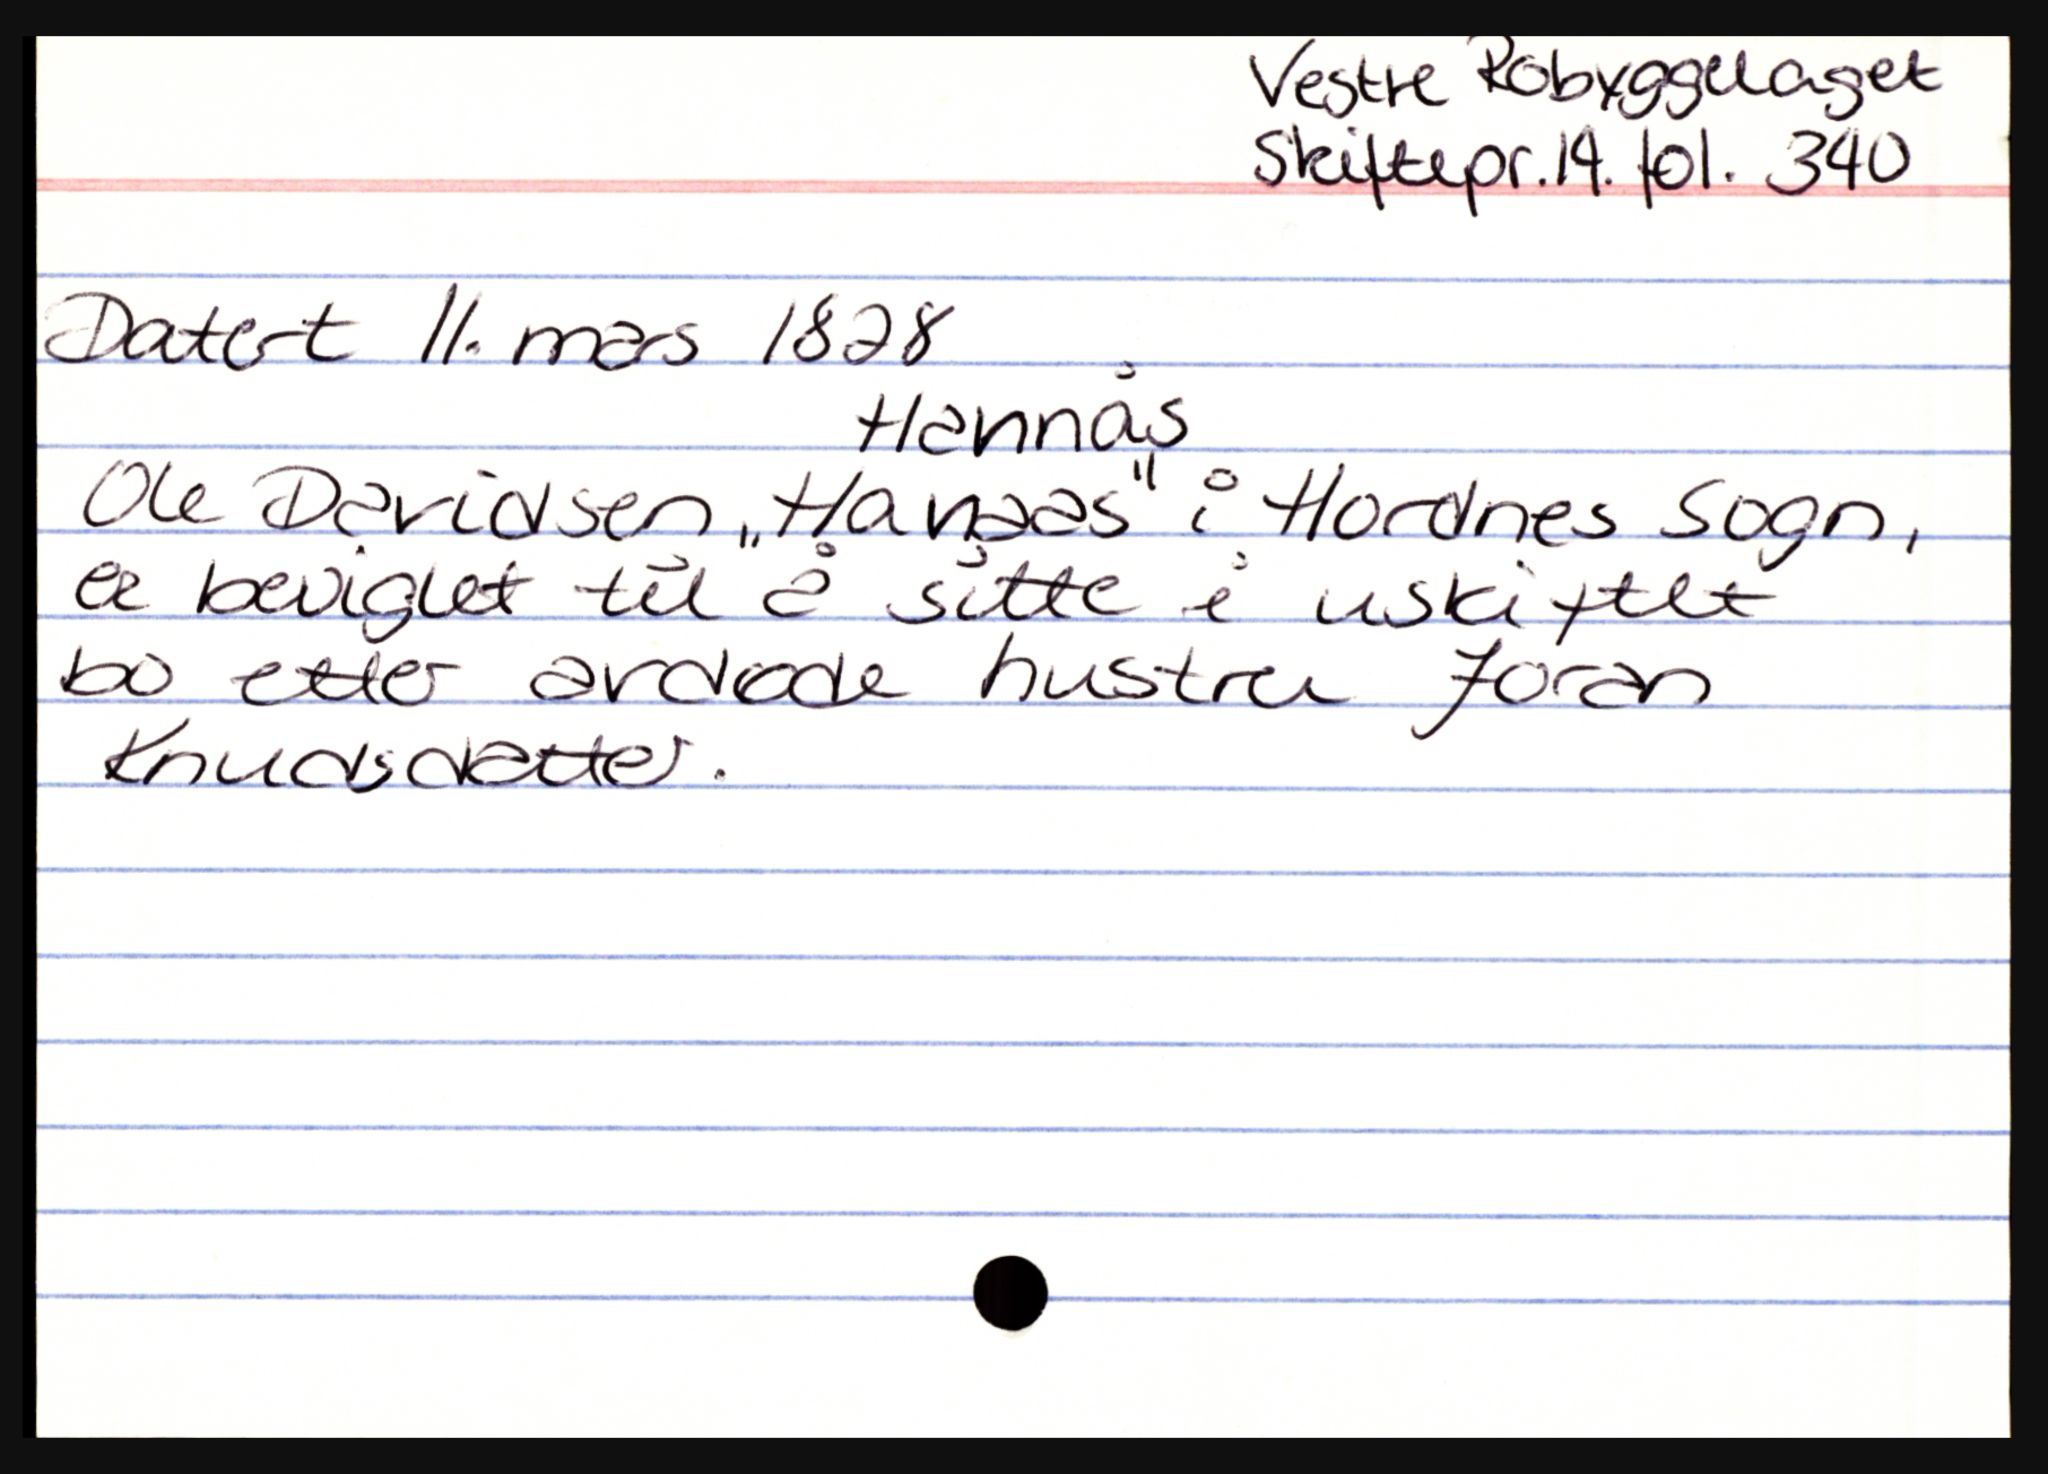 Vestre Robyggelaget
Skiftepr.14. fol. 340
Datert 11. mars 1828
Hannås
Ole Davidsen „Hanaas" i Hordnes Sogn,
er beviglet til å sitte i uskiftet
bo etter avdøde hustru Joran
Knudsdatter.